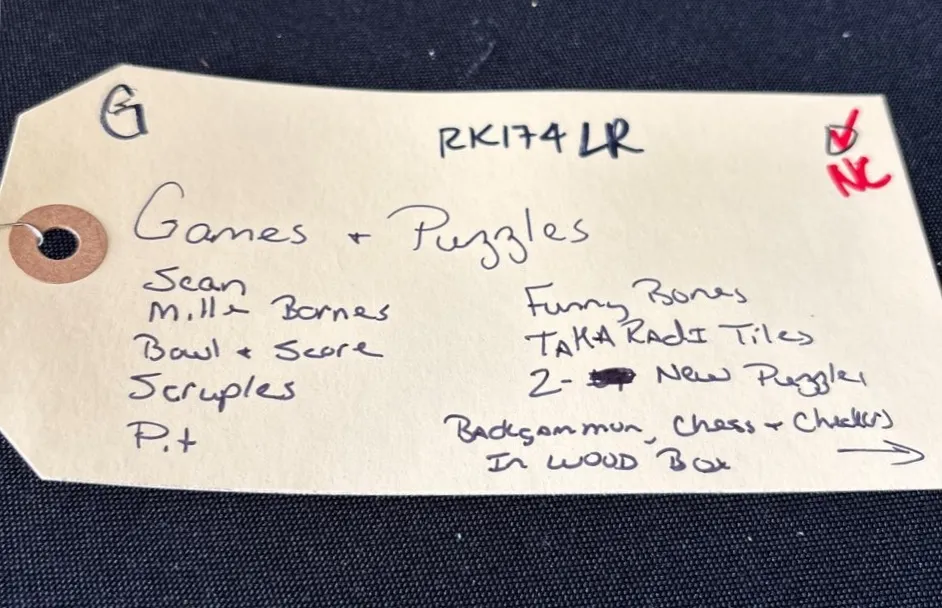 G
RK174 LR
NC
Games + Puzzles
Scan
Mille Bornes
Bowl + Score
Scruples
Pit
Funny Bones
TAKA RAdI Tiles
2- New Puzzles
BAckgammon, Chess + Checkers
In WOOD Box